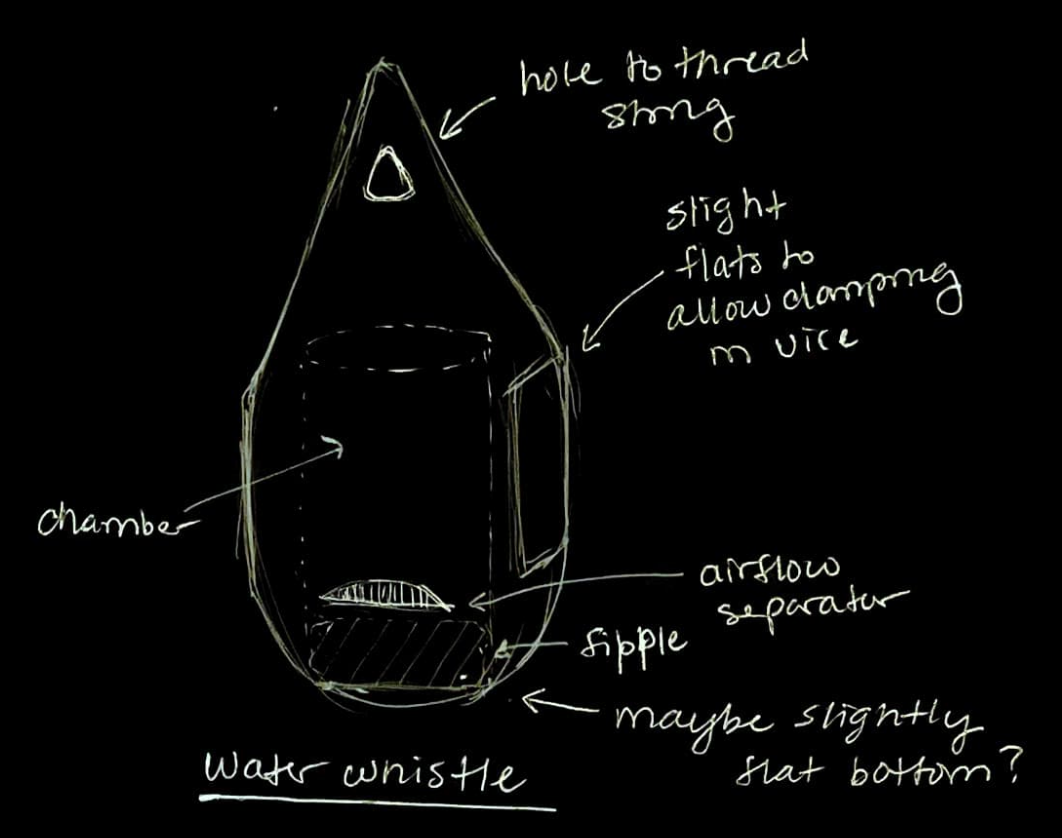 hole to thread
string
slight
flats to
allow clamping
in vice
chamber
airflow
separator
fipple
maybe slightly
flat bottom?
Water whistle